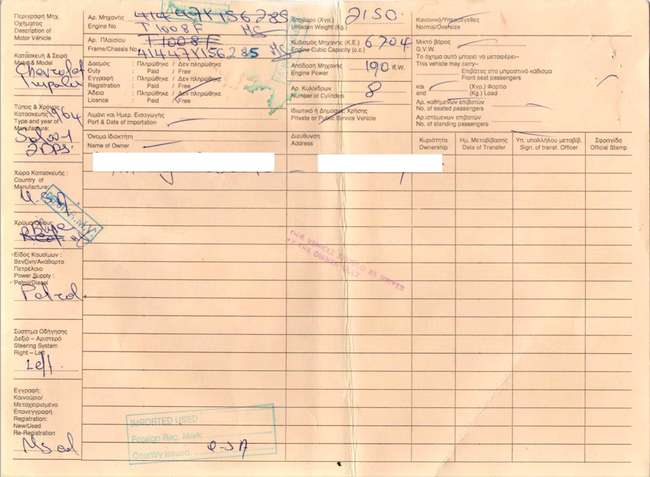 Περιγραφή Μηχ.
Οχήματος
Description of
Motor Vehicle
Αρ. Μηχανής
Engine No
T1008F
Αρ. Πλαισίου
Frame/Chassis No
T1008F
41447Y156285
Απόβαρο (Χγρ.)
Unladen Weight (Kg.)
2150
Κυβισμός Μηχανής (Κ.Ε.)
Engine Cubic Capacity (c.c.)
6704
Απόδοση Μηχανής
Engine Power
190 K.W.
Αρ. Κυλίνδρων
Number of Cylinders
8
Ιδιωτικό ή Δημοσίας Χρήσης
Private or Public Service Vehicle
Κανονικό/Υπερμεγέθες
Normal/Oversize
Μικτό βάρος
G.V.W.
Το όχημα αυτό μπορεί να μεταφέρει-
This vehicle may carry-
Επιβάτες στο μπροστινό κάθισμα
Front seat passengers
και (Χγρ.) Φορτίο
and (Kg.) Load
Αρ. καθημένων επιβατών
No. of seated passengers
Αρ. ισταμένων επιβατών
No. of standing passengers
Κατασκευή & Σειρά
Make & Model
Chevrolet
Impala
Δασμός : Πληρώθηκε / Δεν πληρώθηκε
Duty : Paid / Free
Εγγραφή : Πληρώθηκε / Δεν πληρώθηκε
Registration : Paid / Free
Άδεια : Πληρώθηκε / Δεν πληρώθηκε
Licence : Paid / Free
Λιμάνι και Ημερ. Εισαγωγής
Port & Date of Importation
Τύπος & Χρόνος
Κατασκευής
Type and year of
Manufacture
1964
Saloon
2DRS.
Όνομα Ιδιοκτήτη
Name of Owner
Διεύθυνση
Address
Κυριότητα
Ownership
Ημ. Μεταβίβασης
Date of Transfer
Υπ. υπαλλήλου μεταβιβ.
Sign. of transf. Officer
Σφραγίδα
Official Stamp
Χώρα Κατασκευής :
Country of
Manufacture:
Χρώμα
Blue
Είδος Καυσίμων :
Βενζίνη/Ακάθαρτο
Πετρέλαιο
Power Supply :
Petrol/Diesel
Petrol
Σύστημα Οδήγησης
Δεξιό – Αριστερό
Steering System
Right – Left
Left
Εγγραφή:
Καινούριο/
Μεταχειρισμένο
Επανεγγραφή
Registration:
New/Used
Re-Registration
Used
IMPORTED USED
Foreign Reg. Mark
Country Issued
USA